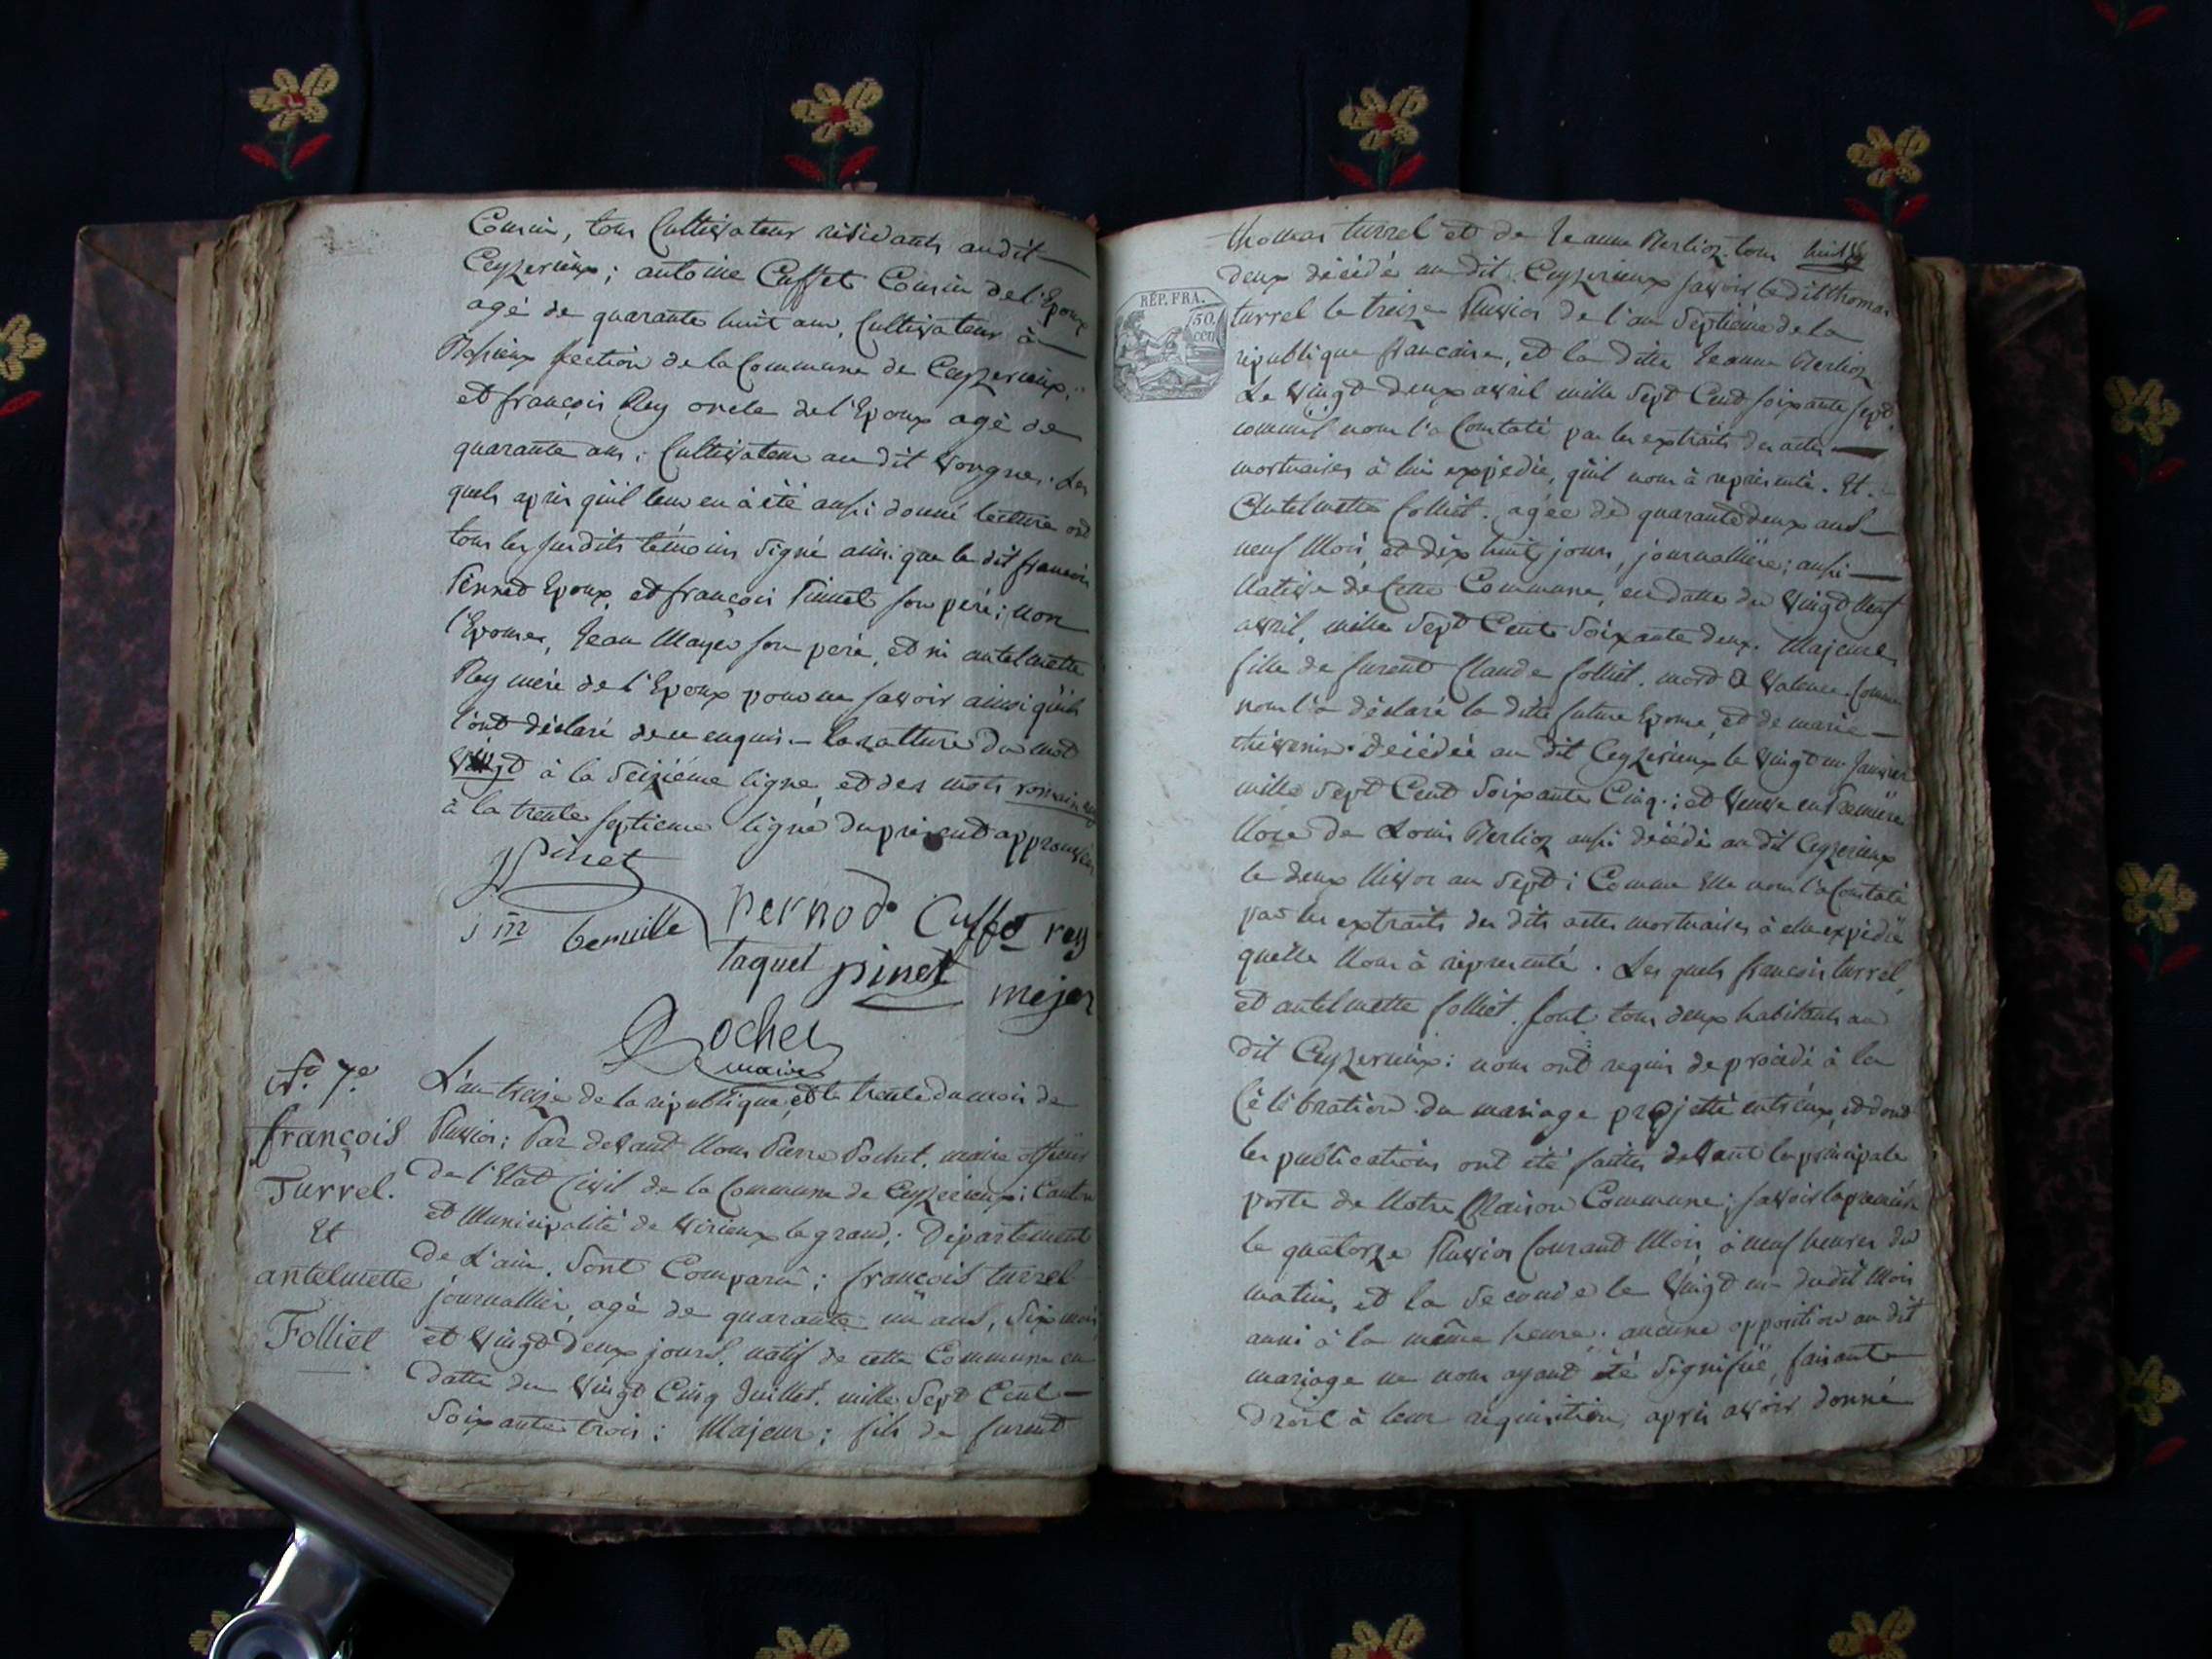 Cousin, tous Cultivateur résidants audit
Ceyzerieux; antoine Cuffet Cousin de l'Epoux
agé de quarante huit ans, Cultivateur à
section de la Commune de Ceyzerieux;
et françois Rey oncle de l'Epoux agé de
quarante ans; Cultivateur au dit Vongnes. Les
quels après qu'il leur en à été aussi donné lecture ont
tous les susdits témoins signé ainsi que le dit francois
Epoux et françois Pinnet son père; non
l'Epouse, Jean Mayer son père, et ni antelmette
Rey mère de l'Epoux pour ne savoir ainsi qu'ils
l'ont déclaré de ce enquis. la ratture du mot
Vingt à la seizième ligne, et des mots romain
à la trente septieme ligne du présent approuvées
JPinet
pernod Cuffet rey
j m bernille
taquet pinet
mejer
Rochet
maire
No. 7e
L'an treize de la république et le trente du mois de
françois
Pluvios; Par devant Nous Pierre Rochet, maire officier
Turrel.
de l'Etat Civil de la Commune de Ceyzerieux; Canton
Et
et Municipalité de Virieux le grand; Département
antelmette
De L'ain. Sont Comparû; francois turrel
Folliet
journallier, agé de quarante un ans, Six mois
et Vingt deux jours. natif de cette Commune en
datte du Vingt Cinq Juillet mille Sept Cent
Soixante trois; Majeur; fils de furent
thomas turrel et de Jeanne Berlioz tous huit
deux décédé au dit Ceyzerieux savoir le dit thomas
REP. FRA.
50.
cen
turrel le treize Pluvios de l'an Septieme de la
république francaise, et la ditte Jeanne Berlioz
Le Vingt deux avril mille Sept Cent soixante sept
comme il nous l'a Constaté par les extraits des actes
mortuaires à lui expédie, qu'il nous à représenté. Et
Antelmette folliet. agée de quarante deux ans
neuf Mois, et dix huit jours, journallière; aussi
Native de Cette Commune, en datte du Vingt Neuf
avril, mille Sept Cent Soixante deux. Majeure
fille de furent Claude folliet. mort à Valence Comme
nous l'a déclaré la ditte future Epouse, et de marie
thévenin. décédée au dit Ceyzerieux le Vingt un Janvier
mille Sept Cent Soixante Cinq; et Veuve en Premiere
Noce de Louis Berlioz aussi décédé au dit Ceyzerieux
le deux Nivos an Sept; Comme Elle nous l'a Constaté
par les extraits des dits actes mortuaires à elle expédié
quelle Nous à représenté. Les quels francois turrel,
et antelmette folliet. sont tous deux habitants au
dit Ceyzerieux: nous ont requis de procédé à la
Célébration du mariage projetté entr'eux, et dont
les publications ont été faittes devant la principale
porte de Notre Maison Commune; savoir la premiere
le quatorze Pluvios Courant Mois, à neuf heures du
matin, et la seconde le Vingt un dudit Mois
aussi à la même heure. aucune opposition au dit
mariage ne nous ayant été signifiée, faisante
droit à leur réquisition, après avoir donné